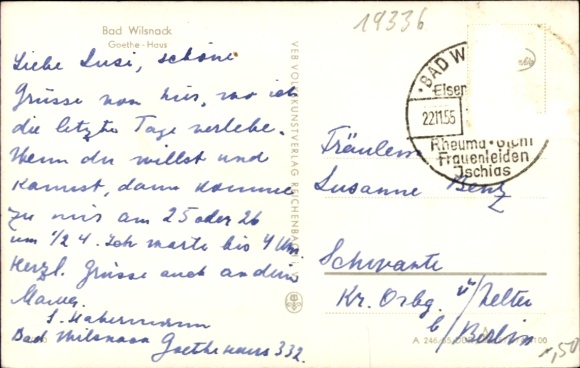 Bad Wilsnack
Goethe-Haus
Liebe Susi, schöne
Grüsse von hier, wo ich
die letzte Tage verlebe.
Wenn du willst und
kannst, dann komme
zu mir am 25 oder 26
um 1/2 4. Ich warte bis 4 Uhr
Herzl. Grüsse auch an dein
Mama.
S. Habermann
Bad Wilsnack Goethehaus 332.
VEB VOLKSKUNSTVERLAG REICHENBACH
19336
BAD W
Eisen
22.11.55
Rheuma · Gicht
Frauenleiden
Ischias
Fräulein
Susanne Benz
Schwante
Kr. Osbg. ü/Velten
b/Berlin
A 246/55 DDR
100
1,50